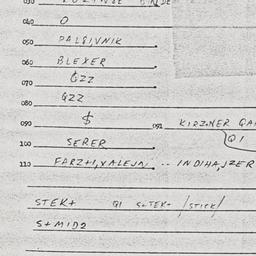 040 O
050 PALGIVNIK
060 BLEXER
070 GZZ
080 GZZ
090 $ 091 KIRZNER
QI
100 SERER
110 FARZ+I, XALEJAI -- INDIHA, JZER
STEK+ QI S+TEK+ /STICK/
S+MIDZ